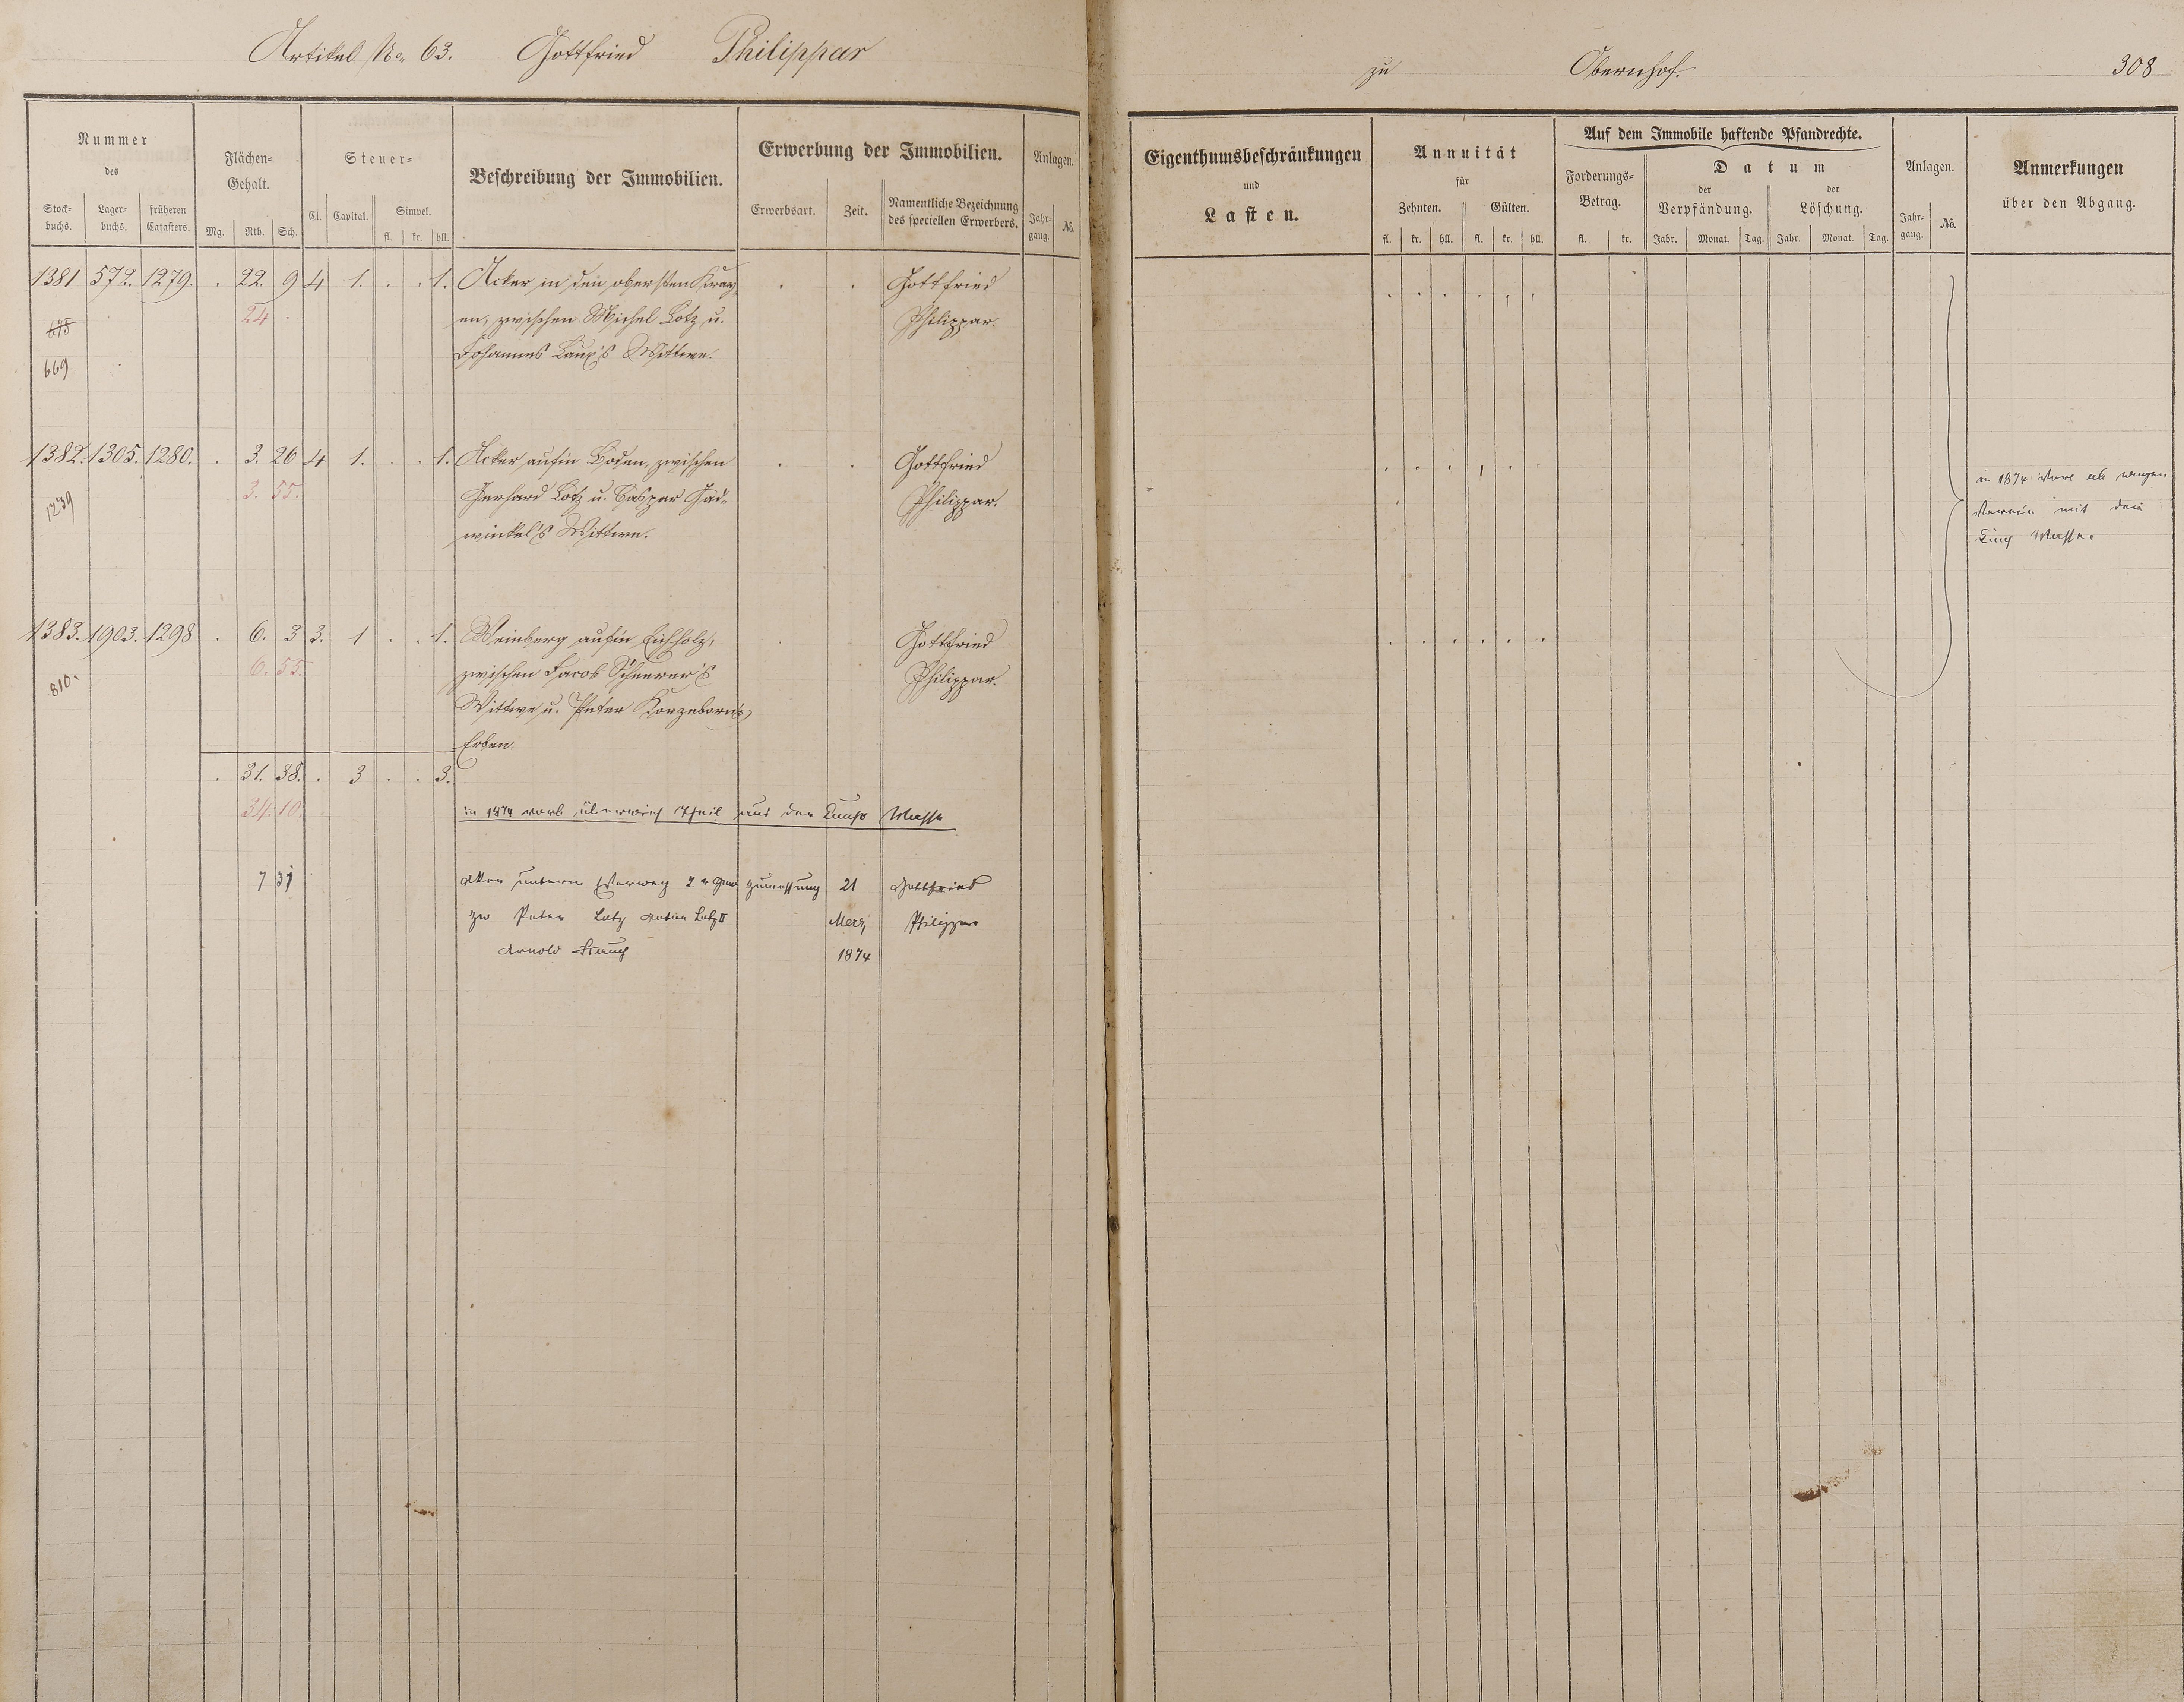 Artikel No. 63. Gottfried Philippar
zu Obernhof. 308
Nummer
des
Stock-
buchs.
Lager-
buchs.
früheren
Catasters.
Flächen-
Gehalt.
Mg. Rth. Sch.
Steuer-
Cl. Capital. Simpel.
fl. kr. hll.
Beschreibung der Immobilien.
Erwerbung der Immobilien.
Erwerbsart. Zeit. Namentliche Bezeichnung
des speciellen Erwerbers.
Anlagen.
Jahr-
gang. No.
Eigenthumsbeschränkungen
und
Lasten.
Annuität
für
Zehnten. Gülten.
fl. kr. hll. fl. kr. hll.
Auf dem Immobile haftende Pfandrechte.
Forderungs-
Betrag.
fl. kr.
Datum
der
Verpfändung.
der
Löschung.
Jahr. Monat. Tag. Jahr. Monat. Tag.
Anlagen.
Jahr-
gang. No.
Anmerkungen
über den Abgang.
1381 572. 1279. . 22. 9 4 1. . . 1. Acker in den obersten . . Gottfried
24 en, zwischen Michel Lotz u. Philippar.
Johannes Wittwe.
669
1382. 1305. 1280. . 3. 26 4 1. . . 1. Acker aufm Boden, zwischen . . Gottfried
1239 3. 55. Gerhard Lotz u. Caspar Had-
Philippar.
winkel's Wittwe.
1383. 1903. 1298 . 6. 3 3. 1 . . 1. Weinberg aufm Eichholz, Gottfried
810. 6. 55. zwischen Jacob Scheurer's Philippar.
Wittwe u. Peter Korzeborn's
Erben.
. 31. 38. . 3 . . 3.
34. 10.
in 1874 Theil aus der Masse
7 31 untern 2r zumessung 21 Gottfried
zw Peter Lotz Anton Lotz II Merz Philippar
Arnold 1874
in 1874 ab wegen
mit dem
Masse.